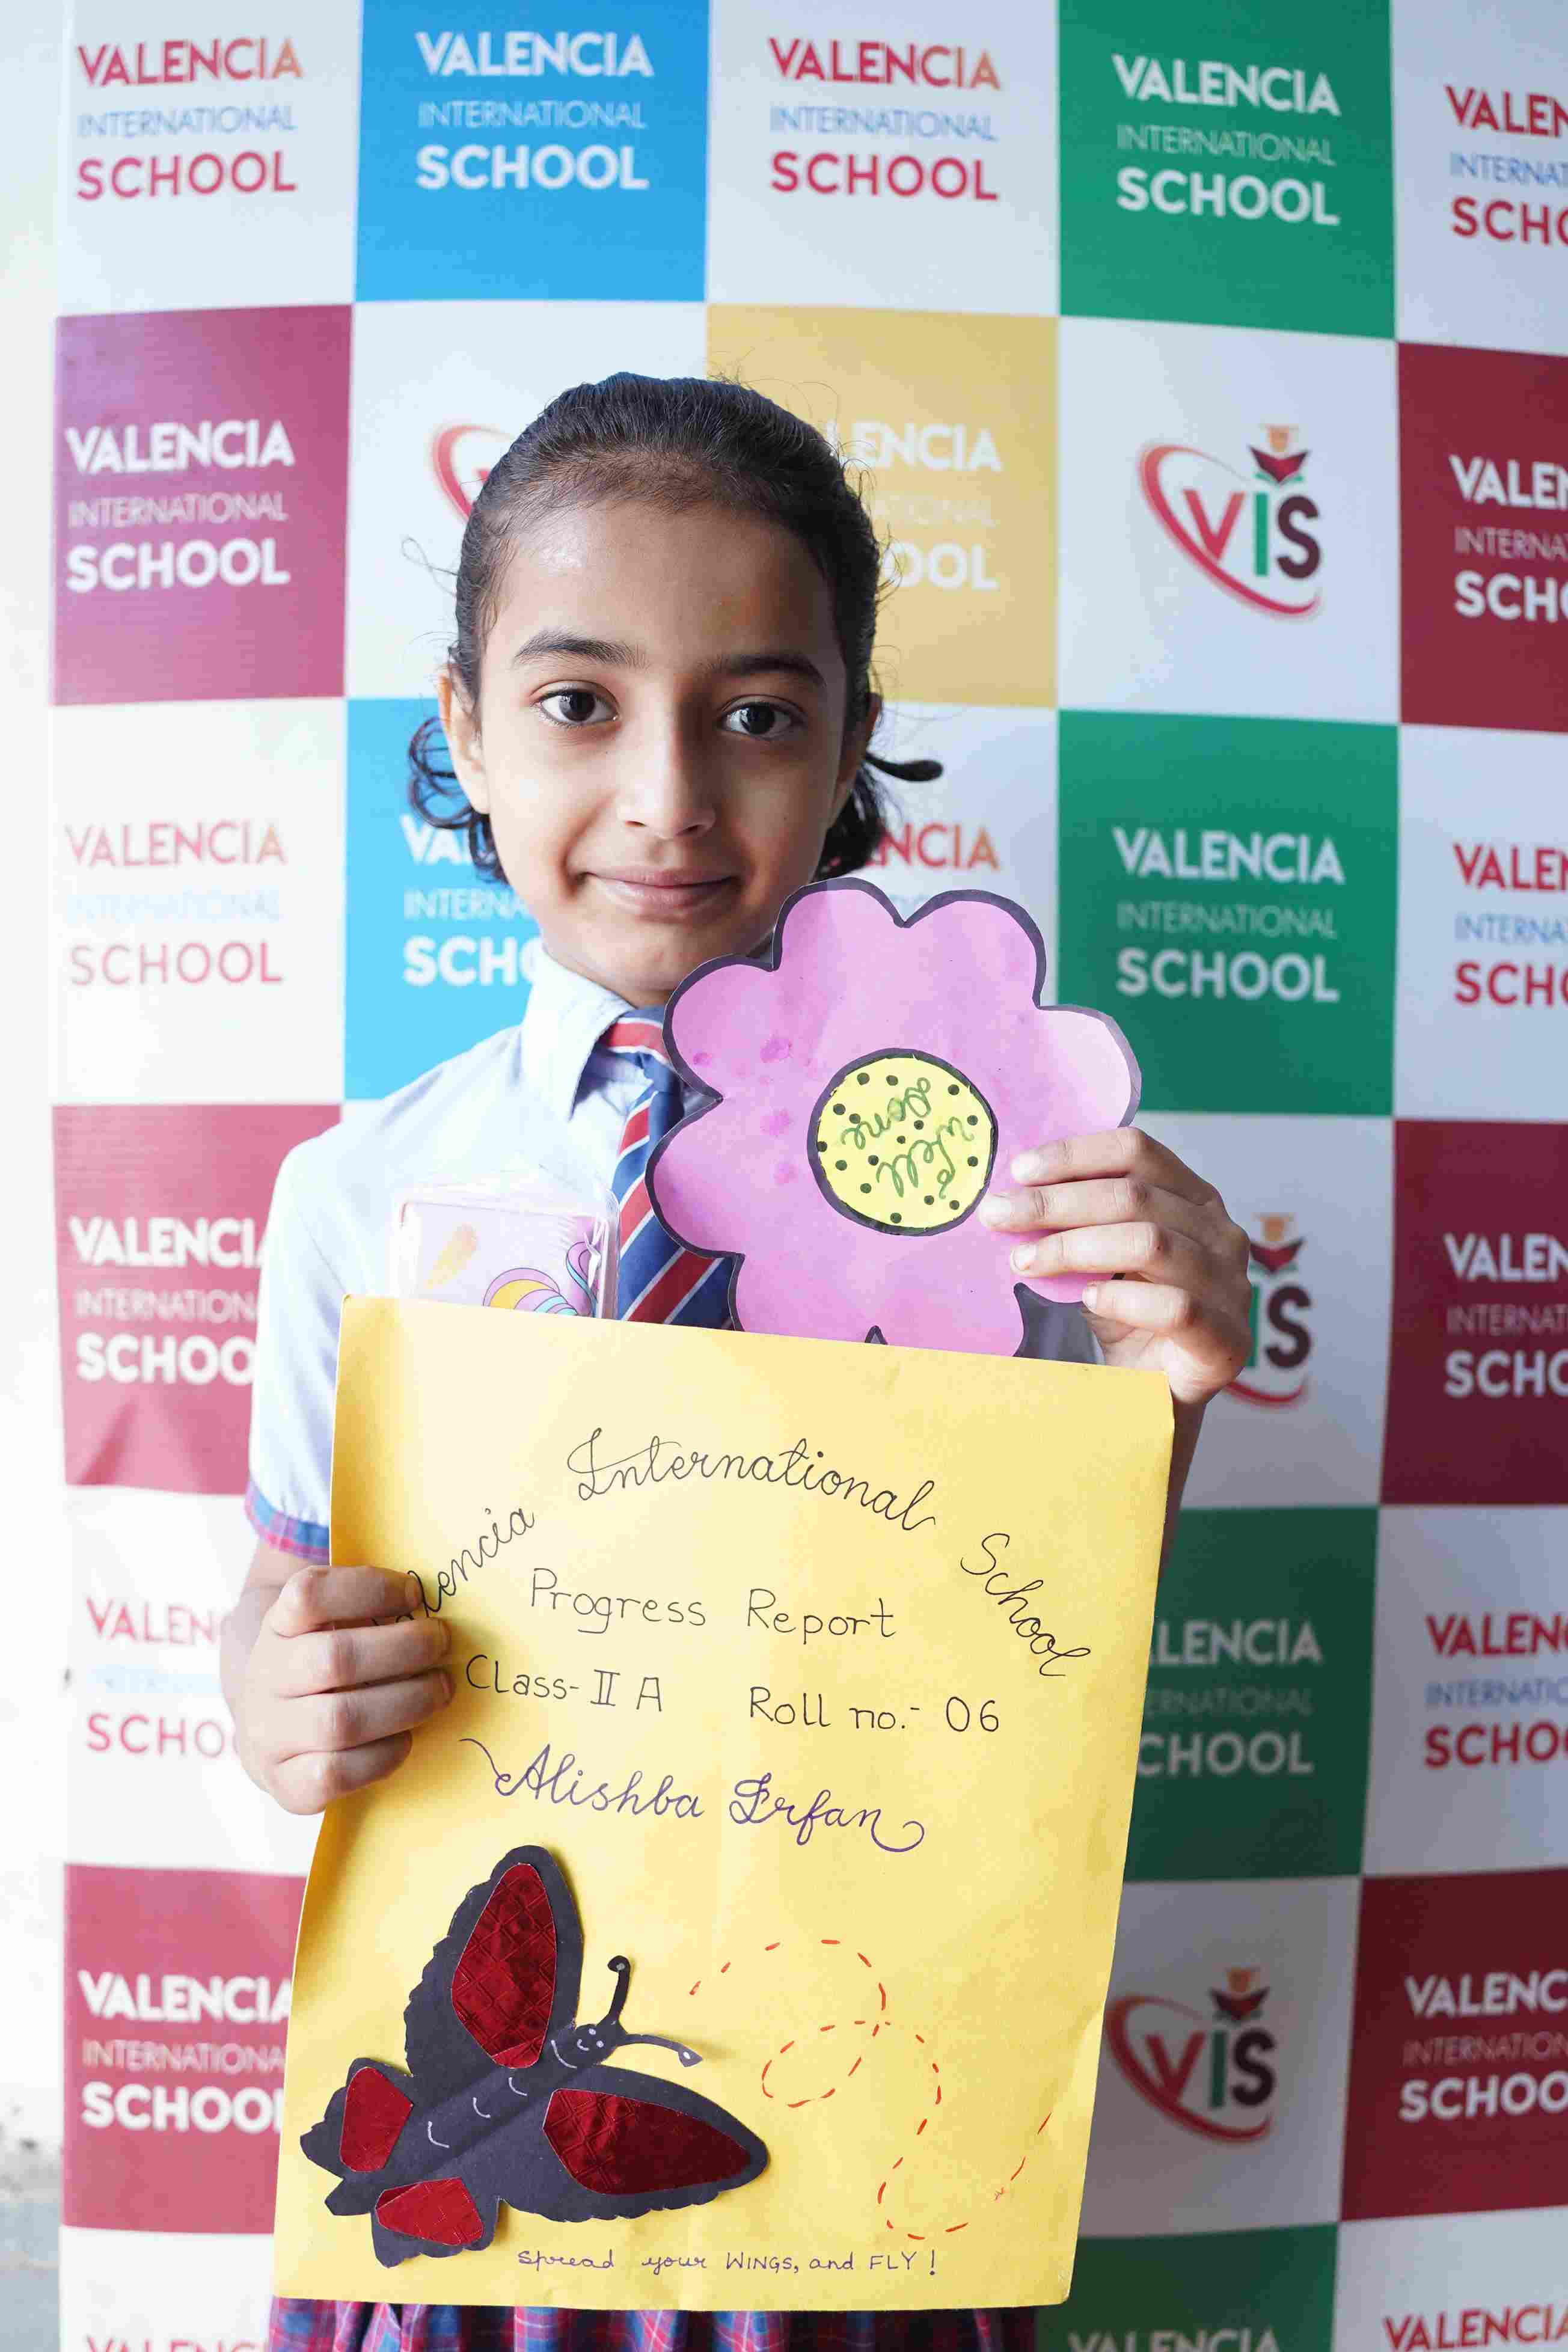 VALENCIA
INTERNATIONAL
SCHOOL
VALENCIA
INTERNATIONAL
SCHOOL
VALENCIA
INTERNATIONAL
SCHOOL
VALENCIA
INTERNATIONAL
SCHOOL
VALEN
INTERNAT
SCHO
VALENCIA
INTERNATIONAL
SCHOOL
ENCIA
TIONAL
OOL
VIS
VALEN
INTERNA
SCHO
VALENCIA
INTERNATIONAL
SCHOOL
VA
INTERNA
SCHO
NCIA
VALENCIA
INTERNATIONAL
SCHOOL
VALEN
INTERNA
SCHO
VALENCI
INTERNATION
SCHOO
IS
VALEN
INTERNAT
SCHO
Well
done
alencia International School
Progress Report
Class- II A Roll no.- 06
Alishba Irfan
Spread your WINGS, and FLY !
VALEN
SCHO
LENCIA
ERNATIONAL
CHOOL
VALEN
INTERNATIO
SCHOO
VALENCIA
INTERNATIONA
SCHOOL
VIS
VALENC
INTERNATION
SCHOO
VALENCIA
VALENCIA